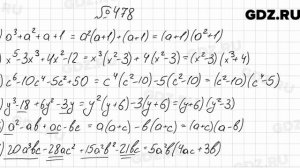 GDZ.RU
№ 478
) a³ + a² + a + 1 = a²(a+1) + (a+1) = (a+1)(a²+1)
) x⁵ - 3x³ + 4x² - 12 = x³(x² - 3) + 4(x² - 3) = (x² - 3)(x³ + 4)
) c⁶ - 10c⁴ - 5c² + 50 = c⁴(c² - 10) - 5(c² - 10) = (c² - 10)(c⁴ - 5)
) y³ - 18 + 6y² - 3y = y²(y+6) - 3(y+6) = (y+6)(y² - 3)
) a² - ab + ac - bc = a(a+c) - b(a+c) = (a+c)(a-b)
) 20a³bc - 28ac² + 15a²b² - 21bc = 5a²b(4ac + 3b)
GDZ.RU